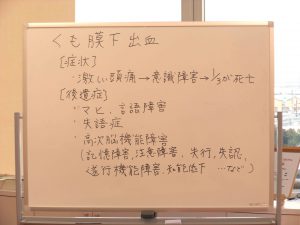 くも膜下出血
[症状]
・激しい頭痛→意識障害→1/3が死亡
[後遺症]
・マヒ、言語障害
・失語症
・高次脳機能障害
(記憶障害,注意障害,失行,失認,
遂行機能障害,知能低下 …など)